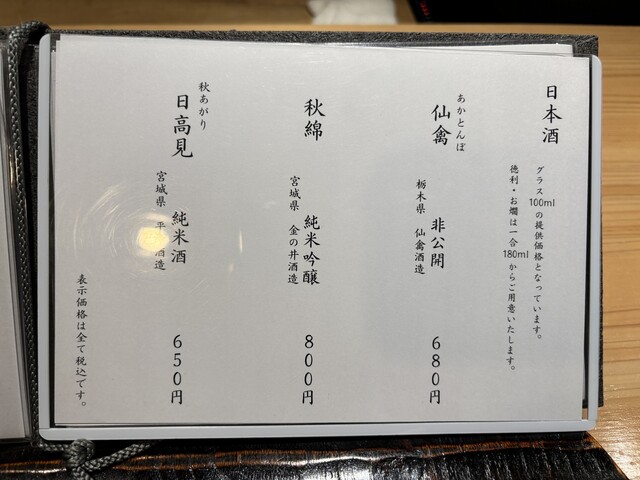 日本酒
グラス100mlの提供価格となっています。
徳利・お燗は一合180mlからご用意いたします。
あかとんぼ
仙禽 非公開 680円
栃木県 仙禽酒造
秋綿 純米吟醸 800円
宮城県 金の井酒造
秋あがり
日高見 純米酒 650円
宮城県 平 酒造
表示価格は全て税込です。